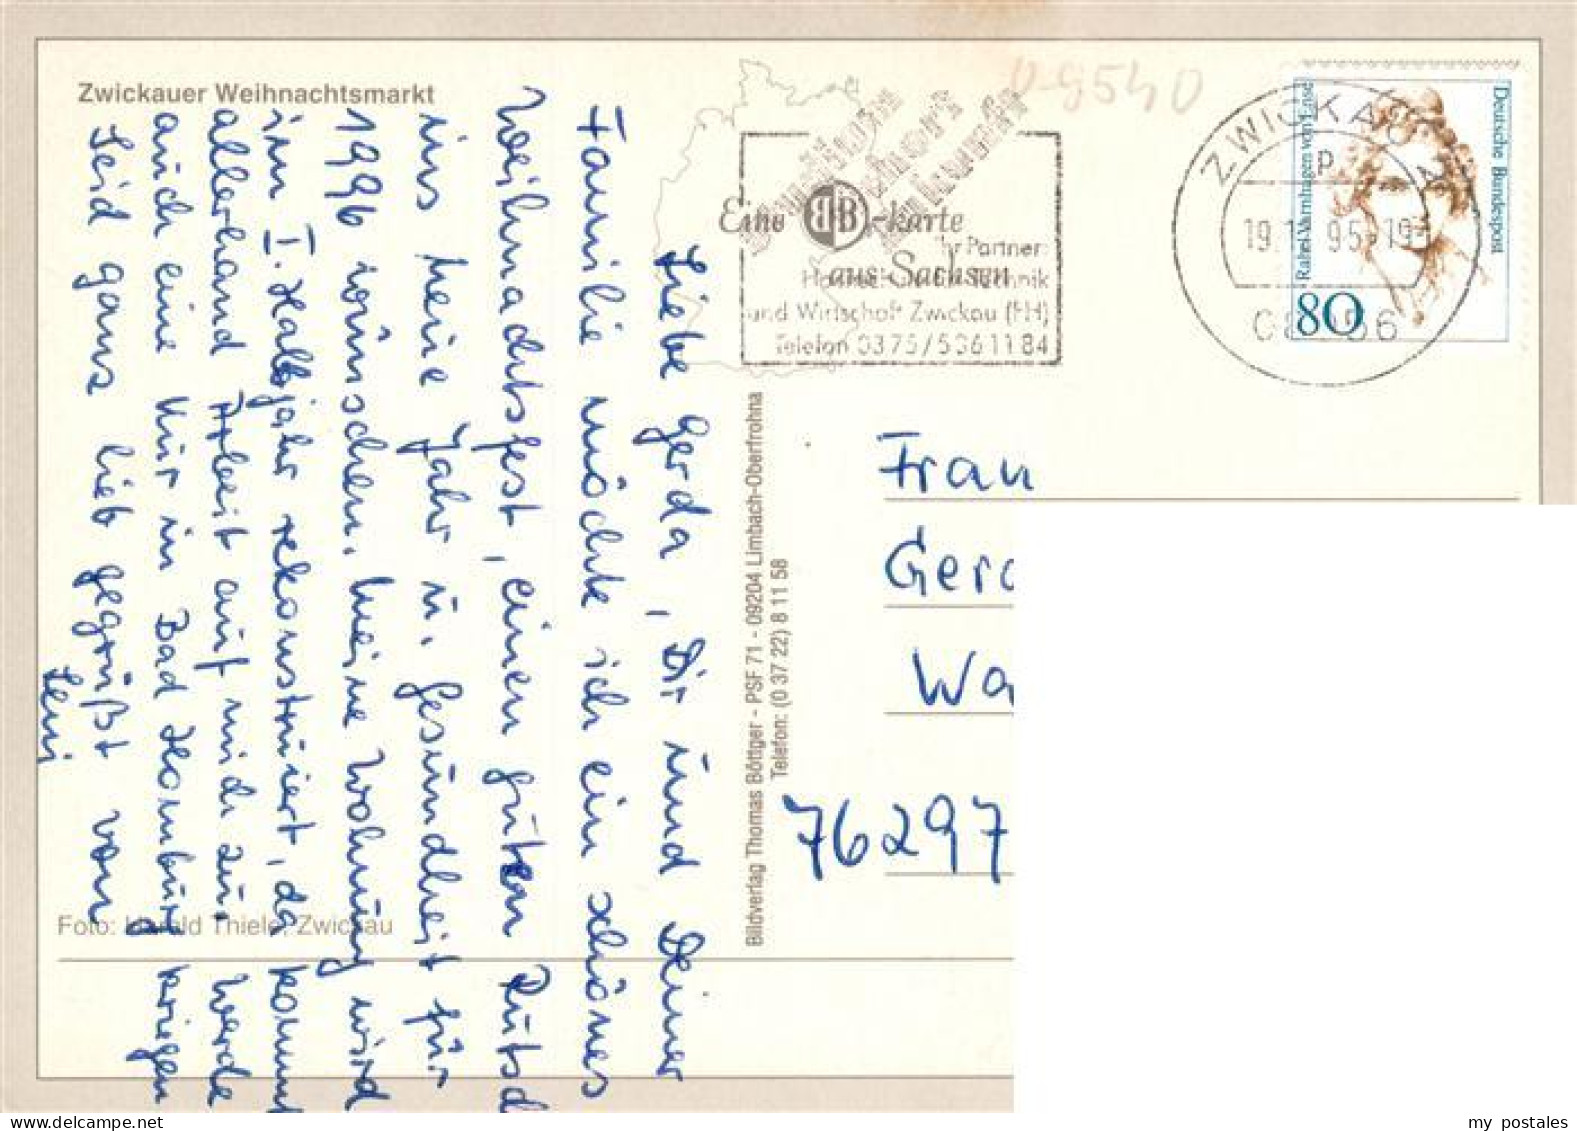 Zwickauer Weihnachtsmarkt
Liebe Gerda, Dir und Deiner
Familie möchte ich ein schönes
Weihnachtsfest, einen guten Rutsch
ins neue Jahr u. Gesundheit für
1996 wünschen. Meine Wohnung wird
im I. Halbjahr rekonstruiert, da kommt
allerhand Arbeit auf mich zu. Werde
auch eine Kur in Bad Homburg kriegen
Seid ganz lieb gegrüßt von
Leni
Foto: Harald Thiele, Zwickau
Bildverlag Thomas Böttger - PSF 71 - 09204 Limbach-Oberfrohna
Telefon: (0 37 22) 8 11 58
09540
Eine BB-karte
aus Sachsen
Ihr Partner:
Technik
und Wirtschaft Zwickau (FH)
Telefon 0375/5361184
ZWICKAU
Deutsche Bundespost
Rahel Varnhagen von Ense
80
Frau
Gerd
Wa
76297
my postales